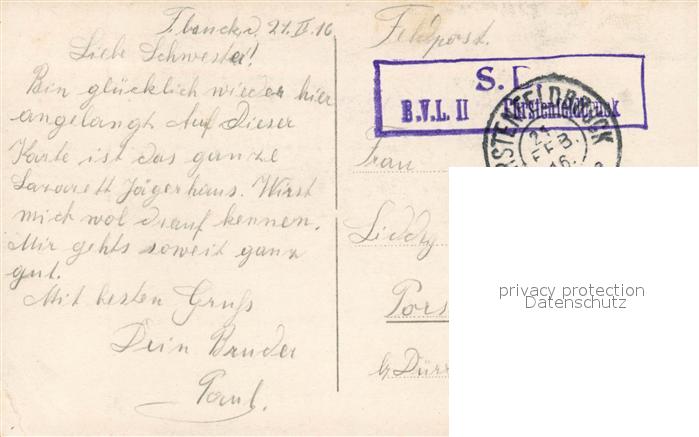 21.II.16
Liebe Schwester!
Bin glücklich wieder hier
angelangt Auf Dieser
Karte ist das ganze
Lazarett Jägerhaus. Wirst
mich wol drauf kennen.
Mir gehts soweit ganz
gut.
Mit besten Gruß
Dein Bruder
Paul.
Feldpost.
S.
B.V.L. II Fürstenfeldbruck
FÜRSTENFELDBRUCK
21
FEB.
16.
Frau
Liddy
Pors
b/Dürr
privacy protection
Datenschutz